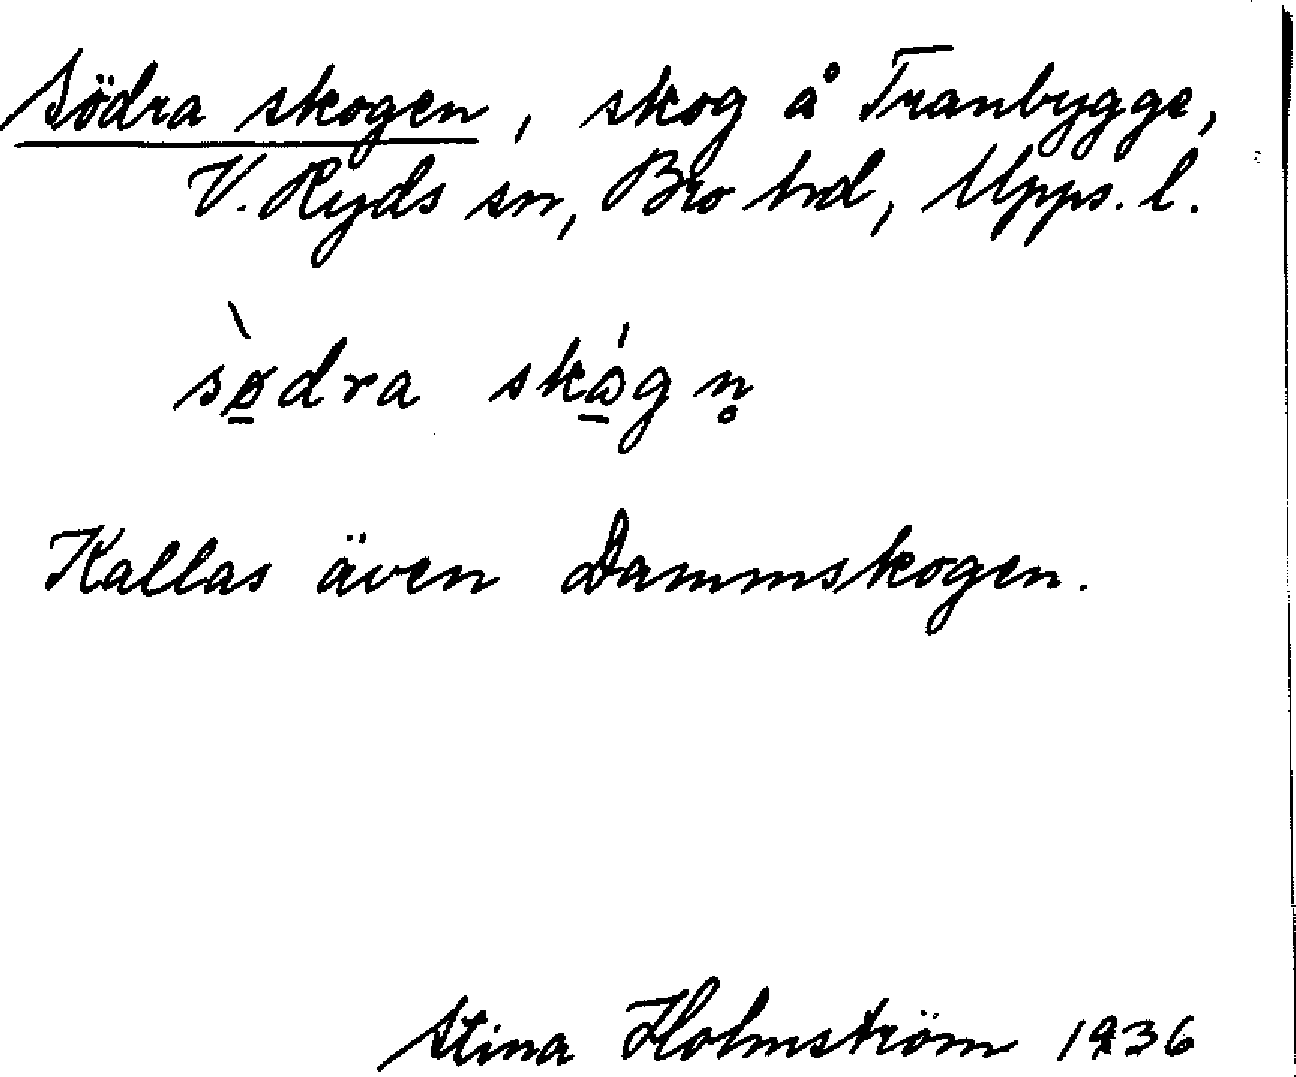 Södra skogen, skog å Tranbygge,
V. Ryds sn, Bro hd, Upps. l.
sø̱̀dra skǻ̱gn̥
Kallas även Dammskogen.
Stina Holmström 1936